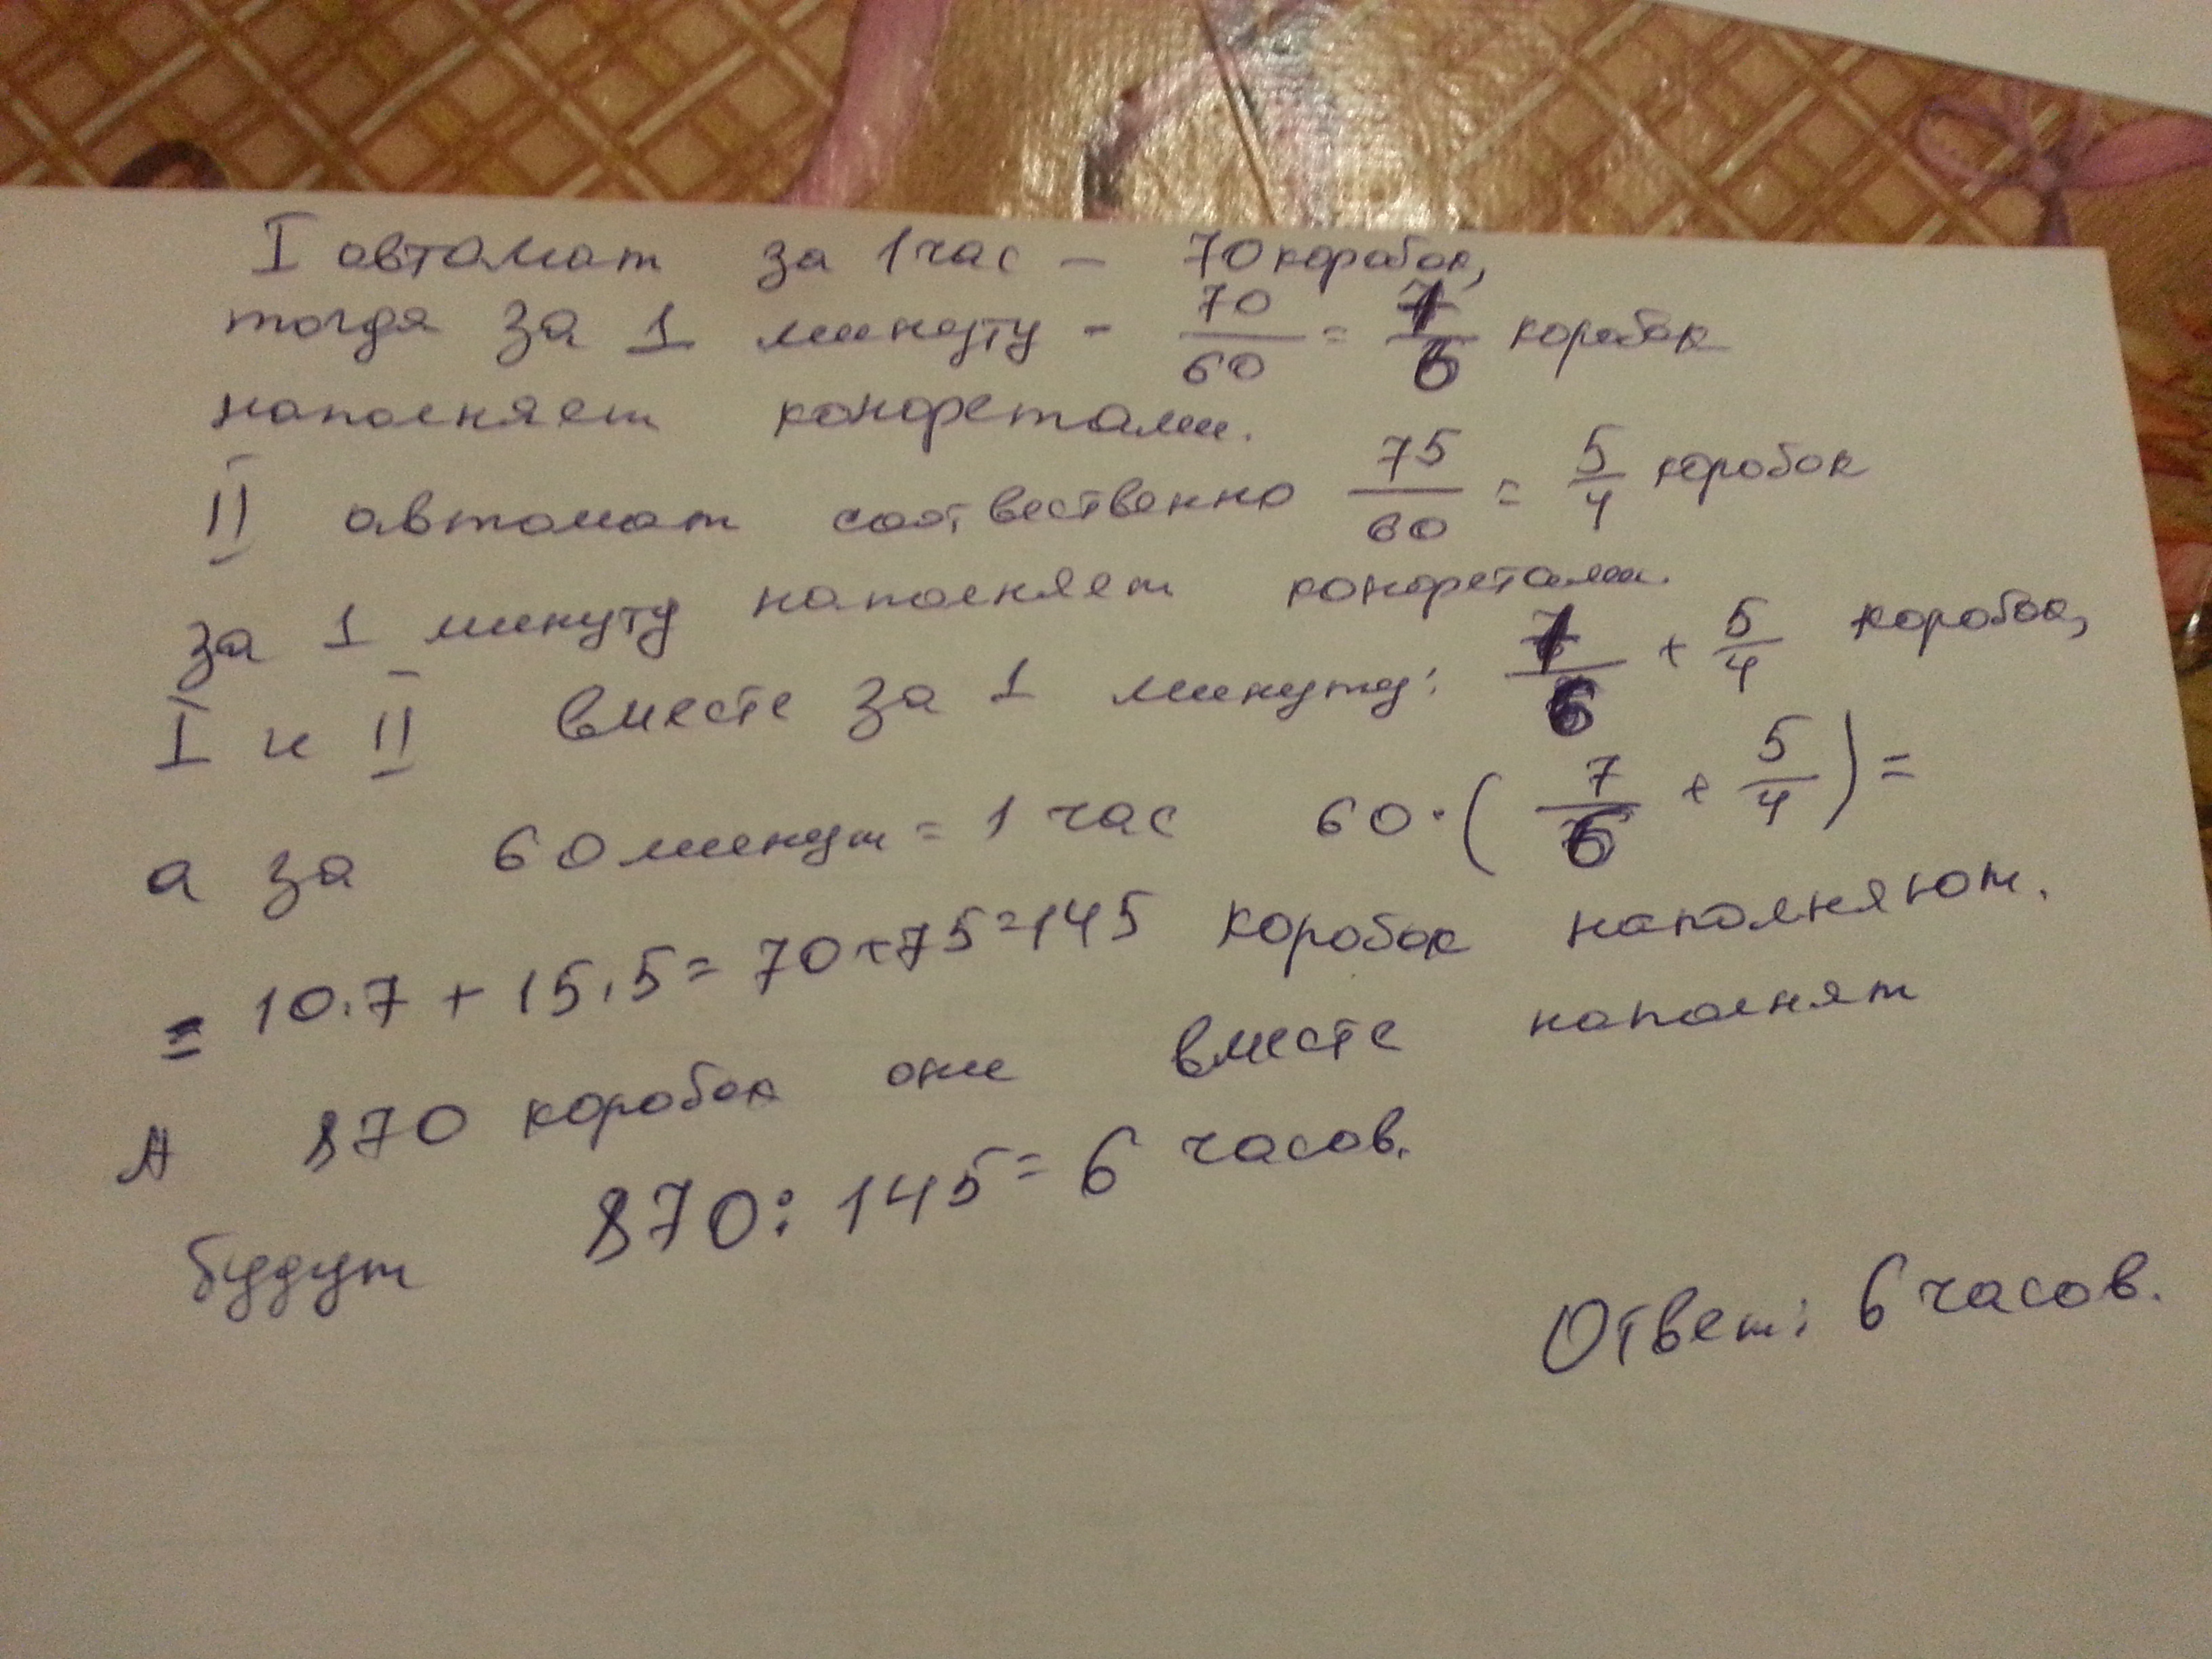 I автомат за 1 час – 70 коробок,
тогда за 1 минуту - 70/60 = 7/6 коробок
наполняет конфетами.
II автомат соотвественно 75/60 = 5/4 коробок
за 1 минуту наполняет конфетами.
I и II вместе за 1 минуту: 7/6 + 5/4 коробок,
а за 60 минут = 1 час 60·(7/6 + 5/4) =
= 10·7 + 15·5 = 70+75=145 коробок наполняют.
А 870 коробок они вместе наполнят
будут 870 : 145 = 6 часов.
Ответ: 6 часов.